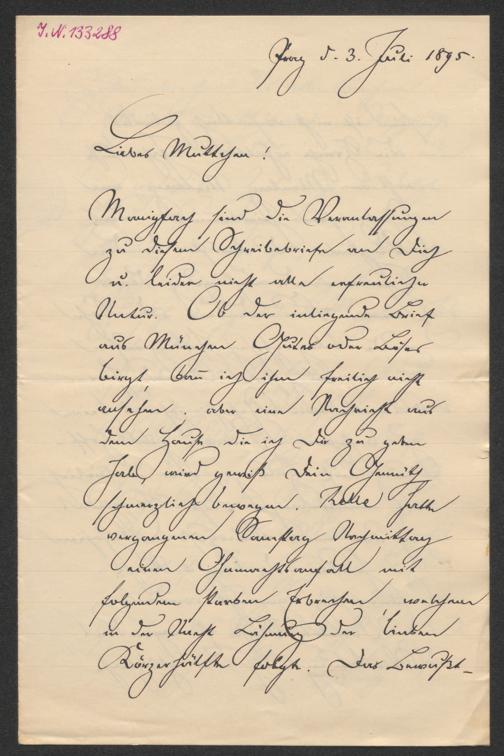 I.N. 133288
Prag d. 3. Juli 1895.
Liebes Muttchen!
Manigfach sind die Veranlassungen
zu diesem Schreibebriefe an Dich
u. leider nicht alle erfreulicher
Natur. Ob der inliegende Brief
aus München Gutes oder Böses
birgt, kann ich ihm freilich nicht
ansehen, aber eine Nachricht aus
dem Hause die ich Dir zu geben
habe, wird gewiß Dein Gemüth
schmerzlich bewegen. hatte
vergangenen Samstag Nachmittag
einen Ohnmachtsanfall mit
folgendem starken Erbrechen welchem
in der Nacht Lähmung der linken
Körperhälfte folgte. Das Bewußt-